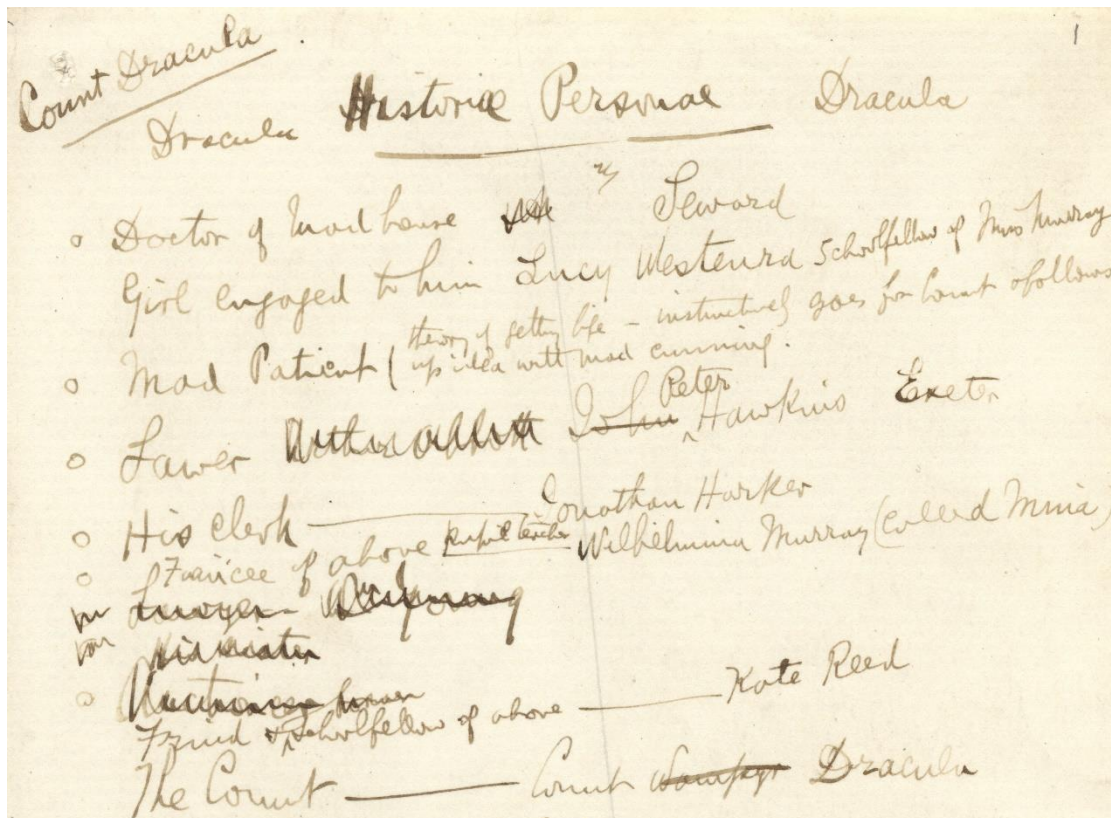 1
Count Dracula
Dracula Historiae Personae Dracula
Doctor of Mad house Seward
Girl engaged to him Lucy Westenra Schoolfellow of Miss Murray
Mad Patient (theory of getting life – instinctively goes for Count & follows
up idea with mad cunning.
Lawer Arthur Abbott John Peter Hawkins Exeter
His Clerk — Jonathan Harker
Fiancee of above pupil teacher Wilhelmina Murray (called Mina)
Lawyer
Friend & Schoolfellow of above — Kate Reed
The Count — Count Wampyr Dracula